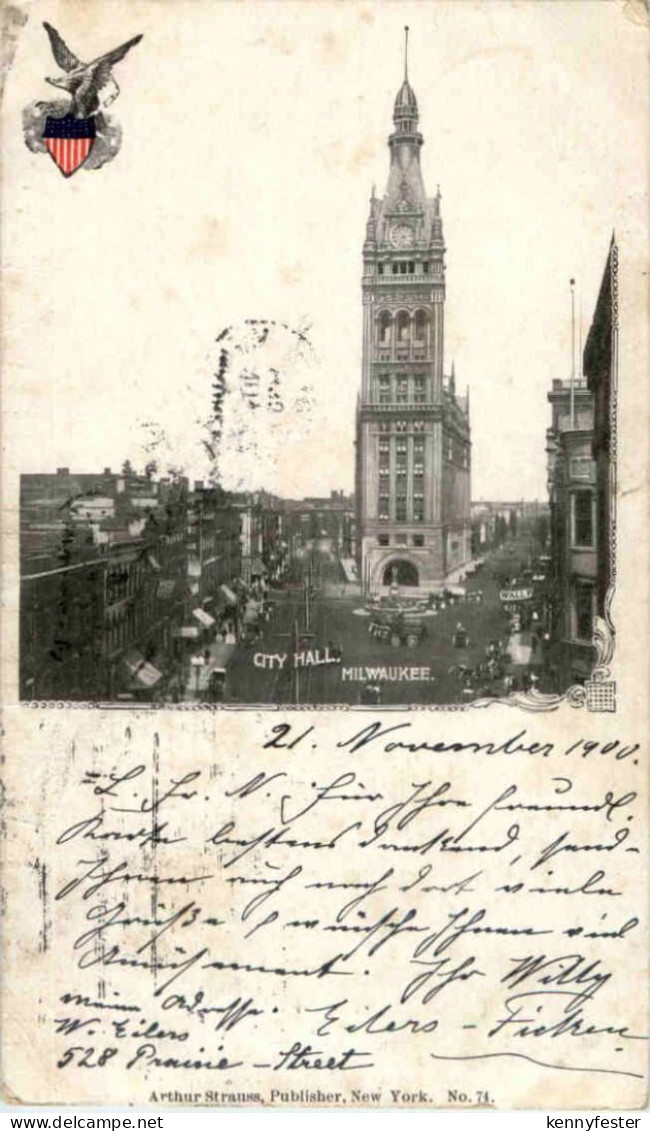 WALL P
CITY HALL. MILWAUKEE.
21. November 1900.
L. Fr. N. Für Ihre freundl.
Karte bestens dankend, send-
Ihnen auch nach dort viele
Grüße & wünsche Ihnen viel
Amüsement. Ihr Willy
meine Adresse: Eilers-Ficken
W. Eilers
528 Prairie-Street
Arthur Strauss, Publisher, New York. No. 74.
kennyfester